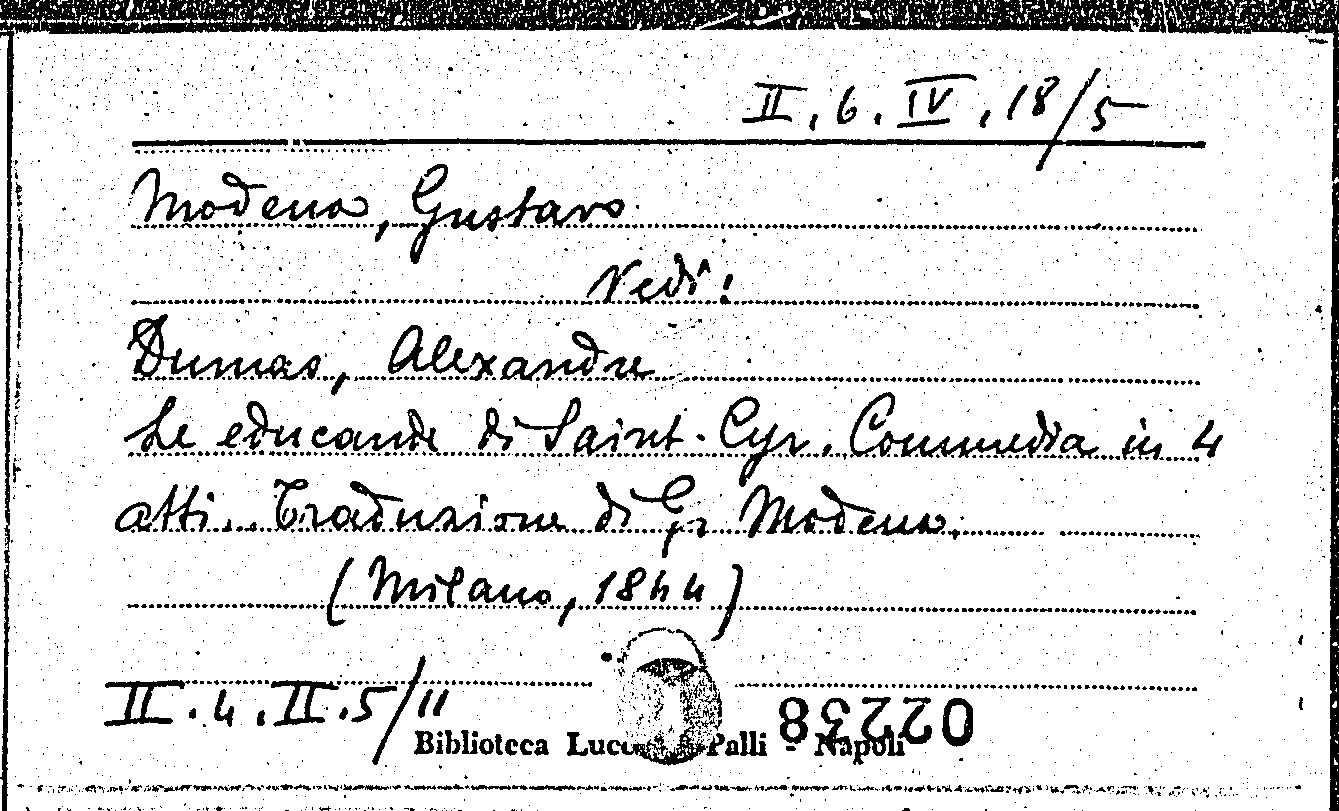 II. 6. IV. 18/5
Modena, Gustavo
Vedi:
Dumas, Alexandre
Le educande di Saint-Cyr. Commedia in 4
atti. Traduzione di G. Modena.
(Milano, 1844)
II. 4. II. 5/11
02238
Biblioteca Lucchesi Palli - Napoli